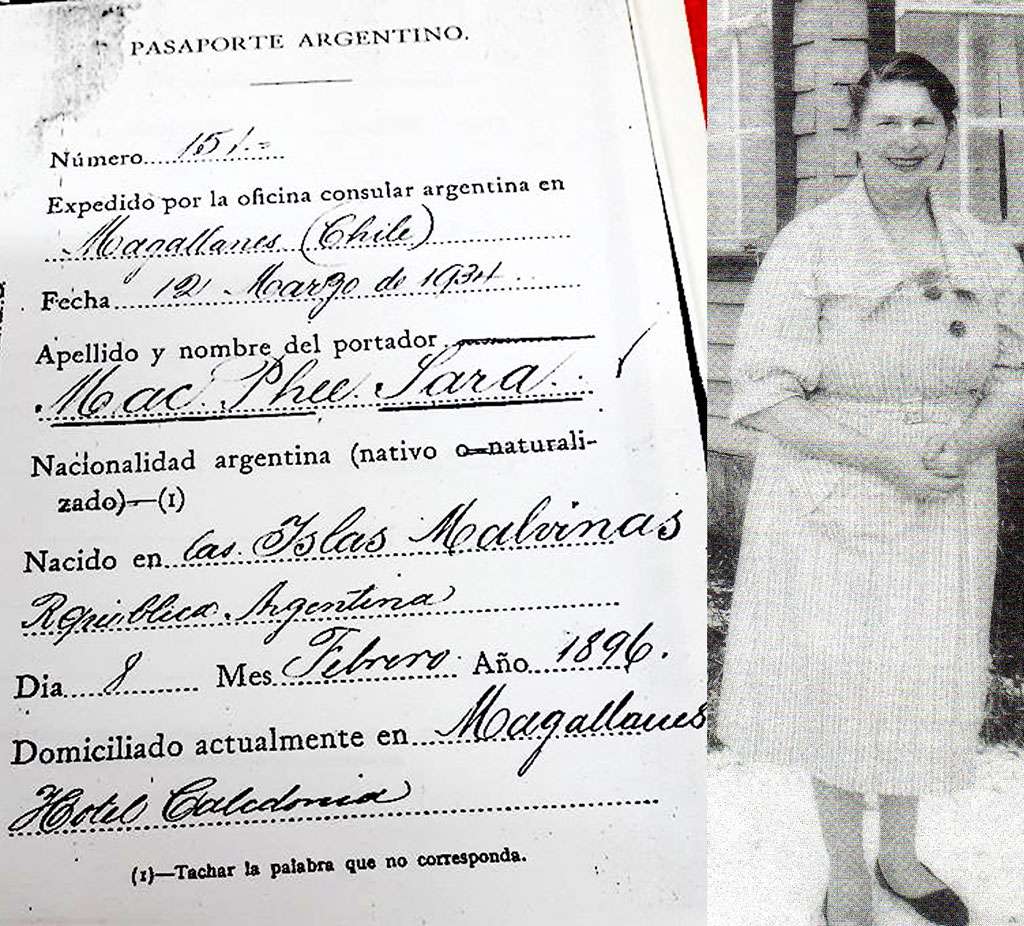 PASAPORTE ARGENTINO.
Número 151.=
Expedido por la oficina consular argentina en
Magallanes (Chile)
Fecha 12 Marzo de 1934
Apellido y nombre del portador
Mac Phee Sara.
Nacionalidad argentina (nativo o naturali-
zado)—(1)
Nacido en las Islas Malvinas
República Argentina
Dia 8 Mes Febrero Año 1896.
Domiciliado actualmente en Magallanes
Hotel Caledonia
(1)—Tachar la palabra que no corresponda.